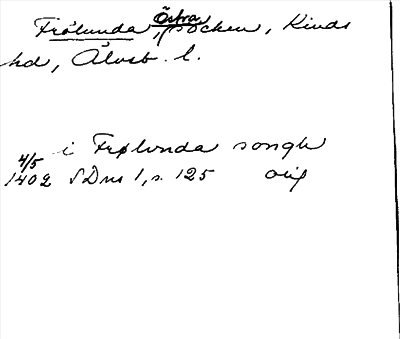 Frölunda, Östra socken, Kinds
hd, Älvsb. l.
i Frølunda songh
4/5
1402 SDns 1, s. 125 orig